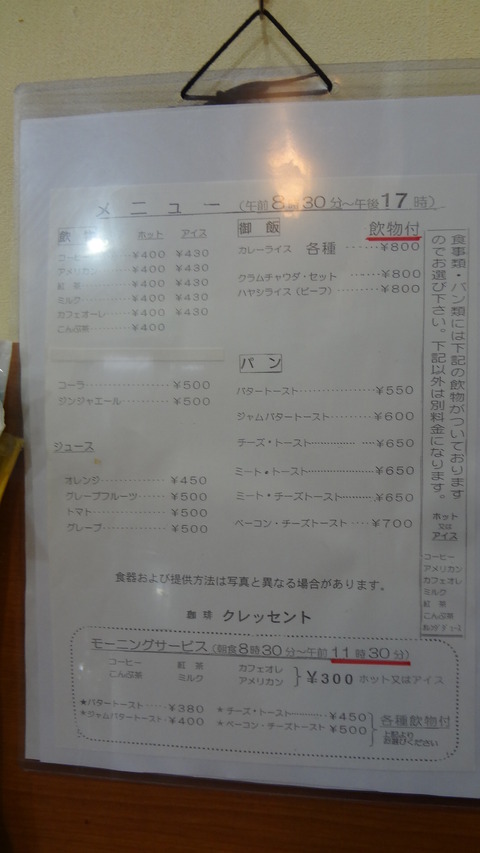 メニュー (午前8時30分～午後17時)
ホット アイス
コーヒー ¥400 ¥430
アメリカン ¥400 ¥430
紅茶 ¥400 ¥430
ミルク ¥400 ¥430
カフェオーレ ¥400 ¥430
こんぶ茶 ¥400
コーラ ¥500
ジンジャエール ¥500
ジュース
オレンジ ¥450
グレープフルーツ ¥500
トマト ¥500
グレープ ¥500
御飯 飲物付
カレーライス 各種 ¥800
クラムチャウダ・セット ¥800
ハヤシライス(ビーフ) ¥800
パン
バタートースト ¥550
ジャムバタートースト ¥600
チーズ・トースト ¥650
ミート・トースト ¥650
ミート・チーズトースト ¥650
ベーコン・チーズトースト ¥700
食事類・パン類には下記の飲物がついております
のでお選び下さい。下記以外は別料金になります。
ホット
又は
アイス
コーヒー
アメリカン
カフェオレ
ミルク
紅茶
こんぶ茶
食器および提供方法は写真と異なる場合があります。
珈琲 クレッセント
モーニングサービス (朝食8時30分～午前11時30分)
コーヒー 紅茶 カフェオレ
こんぶ茶 ミルク アメリカン
¥300 ホット又はアイス
★バタートースト ¥380 *チーズ・トースト ¥450
*ジャムバタートースト ¥400 *ベーコン・チーズトースト ¥500
各種飲物付
上記より
お選びください